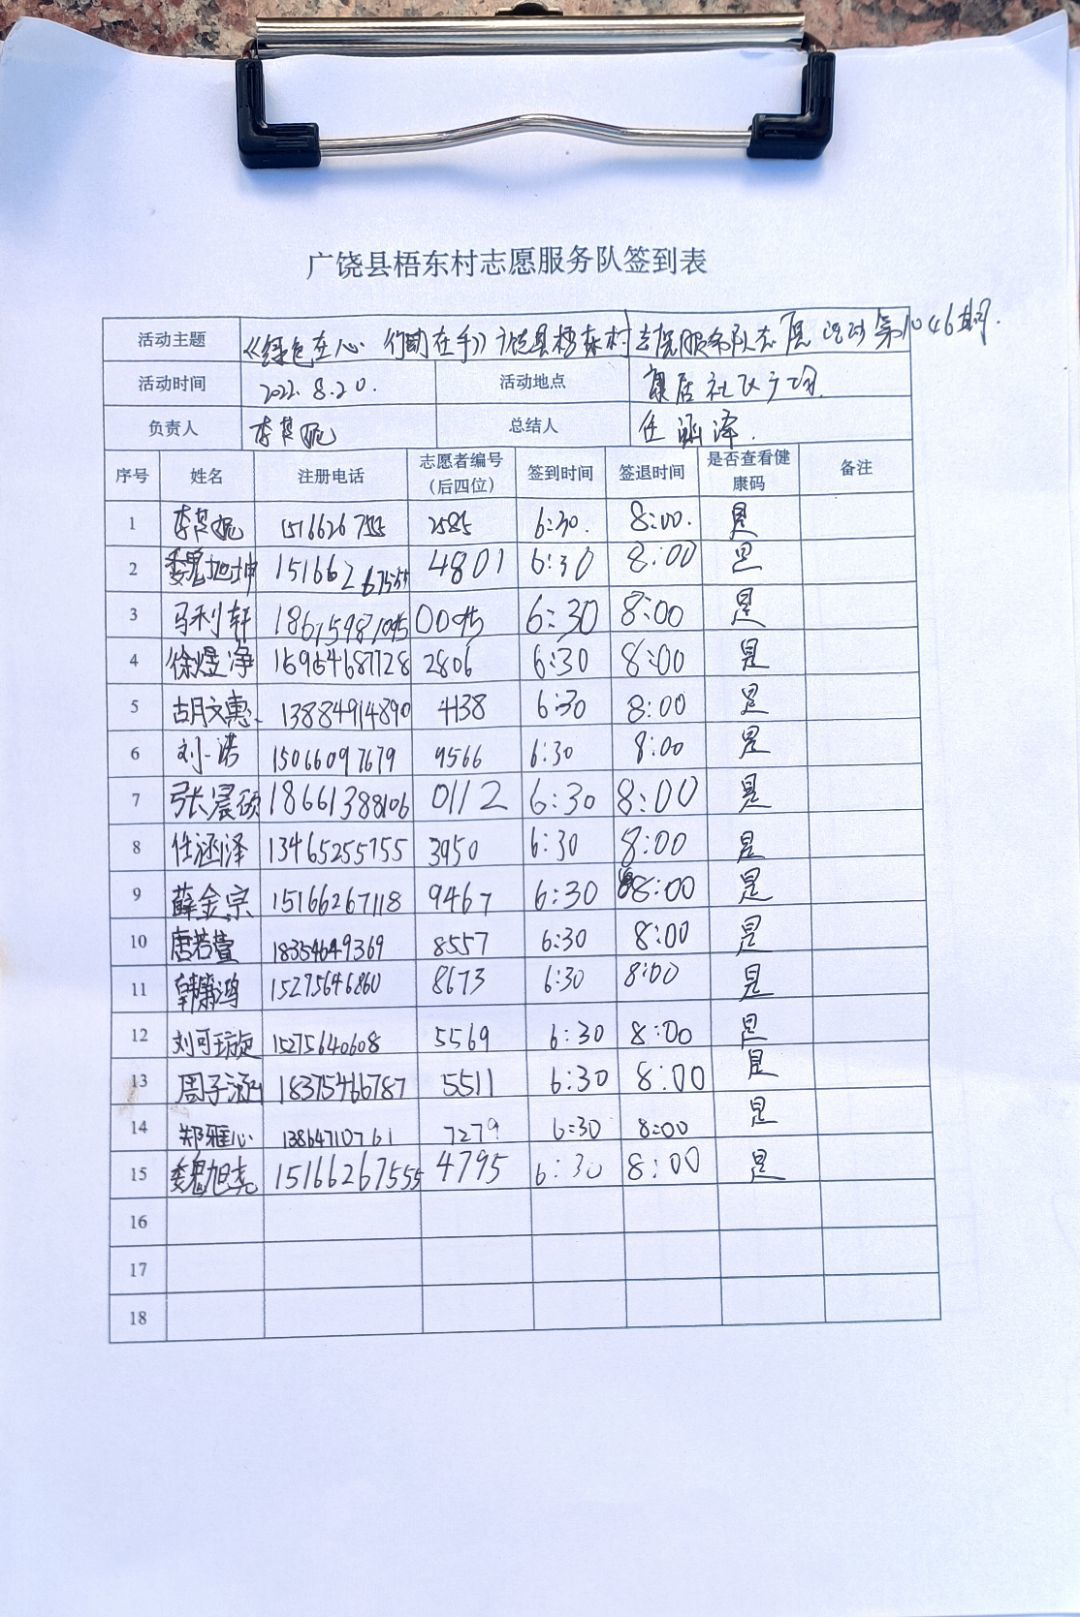 广饶县梧东村志愿服务队签到表
活动主题 《绿色在心 行动在手》广饶县梧东村志愿服务队志愿活动第1046期.
活动时间 2022.8.20. 活动地点 康居社区广场
负责人 总结人 任涵泽.
序号 姓名 注册电话 志愿者编号（后四位） 签到时间 签退时间 是否查看健康码 备注
1 15166267555 2585 6:30. 8:00. 是
2 魏旭坤 15166267555 4801 6:30 8:00 是
3 马利轩 0095 6:30 8:00 是
4 徐煜净 2806 6:30 8:00 是
5 胡文惠 13884914890 4138 6:30 8:00 是
6 刘一诺 15066097679 9566 6:30 8:00 是
7 张宸硕 18661388106 0112 6:30 8:00 是
8 任涵泽 13465255755 3950 6:30 8:00 是
9 薛金宗 15166267118 9467 6:30 8:00 是
10 唐若萱 18354649369 8557 6:30 8:00 是
11 韩萧鸿 15275646860 8673 6:30 8:00 是
12 刘可璇 15275640608 5569 6:30 8:00 是
13 周子涵 18375466787 5511 6:30 8:00 是
14 郑雅心 13864710761 7279 6:30 8:00 是
15 魏旭尧 15166267555 4795 6:30 8:00 是
16
17
18